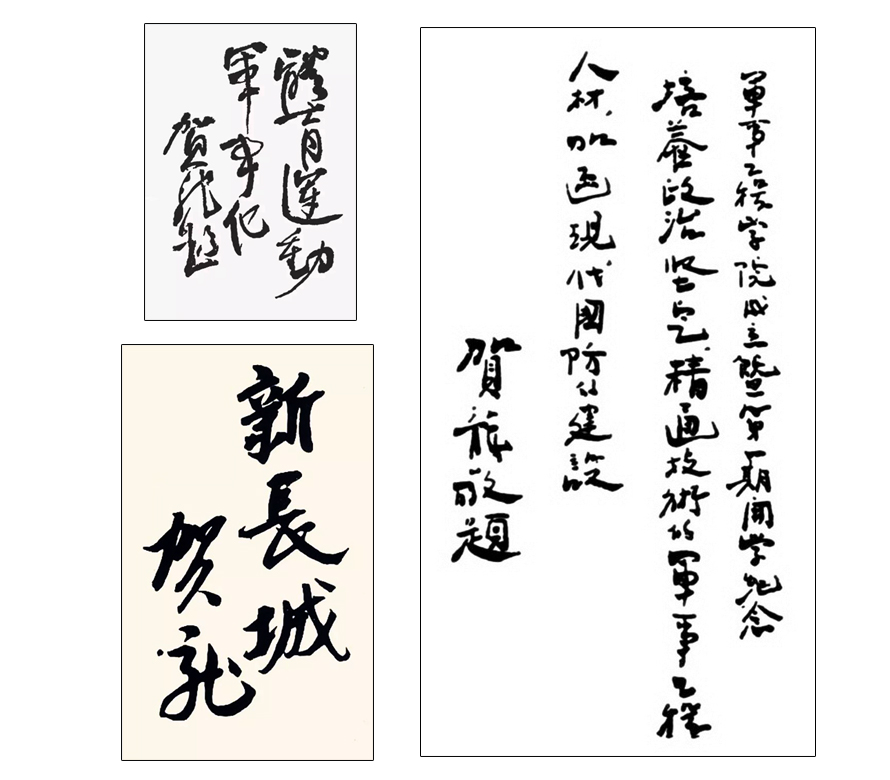 體育運動
軍事化
賀龙題
新長城
贺龙
軍事工程学院成立暨第一期開学紀念
培養政治坚定,精通技術的軍事工程
人材,加強現代國防的建設
賀龍敬題